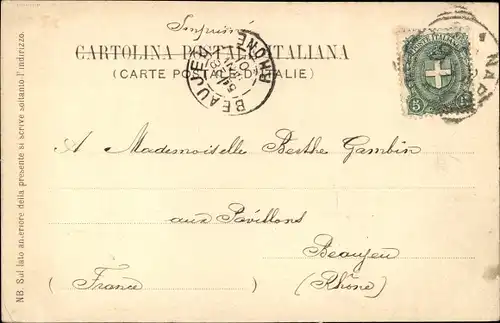 Imprimé
CARTOLINA POSTALE ITALIANA
(CARTE POSTALE D'ITALIE)
BEAUJEU
RHONE
POSTE ITALIANE
5 5
NAP
A Mademoiselle Berthe Gambin
aux Pavillons
Beaujeu
(France) (Rhône)
NB Sul lato anteriore della presente si scrive soltanto l'indirizzo.